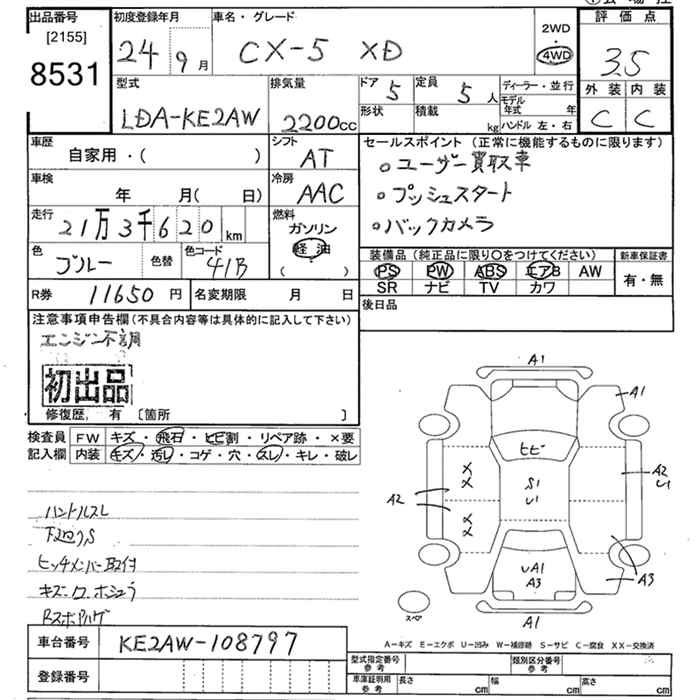 出品番号
[2155]
8531
初度登録年月
24 9月
車名・グレード
CX-5 XD
2WD
4WD
評価点
3.5
外装 内装
C C
型式
LDA-KE2AW
排気量
2200cc
ドア 5
定員 5人
形状
積載 kg
ディーラー・並行
モデル年式 年
ハンドル 左・右
車歴
自家用・( )
シフト
AT
車検
年 月( 日)
冷房
AAC
走行
21万3千620km
燃料
ガソリン
軽油
( )
色
ブルー
色替
色コード
41B
R券 11650円
名変期限 月 日
セールスポイント (正常に機能するものに限ります)
○ユーザー買取車
○プッシュスタート
○バックカメラ
装備品(純正品に限り○をつけてください)
PS PW ABS エアB AW
SR ナビ TV カワ
新車保証書
有・無
後日品
注意事項申告欄(不具合内容等は具体的に記入して下さい)
エンジン不調
初出品
修復歴, 有 〔箇所 〕
検査員記入欄
FW キズ・飛石・ヒビ割・リペア跡・×要
内装 キズ・汚レ・コゲ・穴・スレ・キレ・破レ
ハンドルスレ
下廻りS
ヒッチメンバー取付
キズ・ワ・ホシュウ
A1
A1
ヒビ
X
X
S1
U1
A2
U1
A2
X
X
UA1
A3
A3
スペア
A1
A-キズ E-エクボ U-凹み W-補修跡 S-サビ C-腐食 XX-交換済
車台番号 KE2AW-108797
登録番号
型式指定番号 参考
類別区分番号 参考
車庫証明用 参考
長さ cm
幅 cm
高さ cm